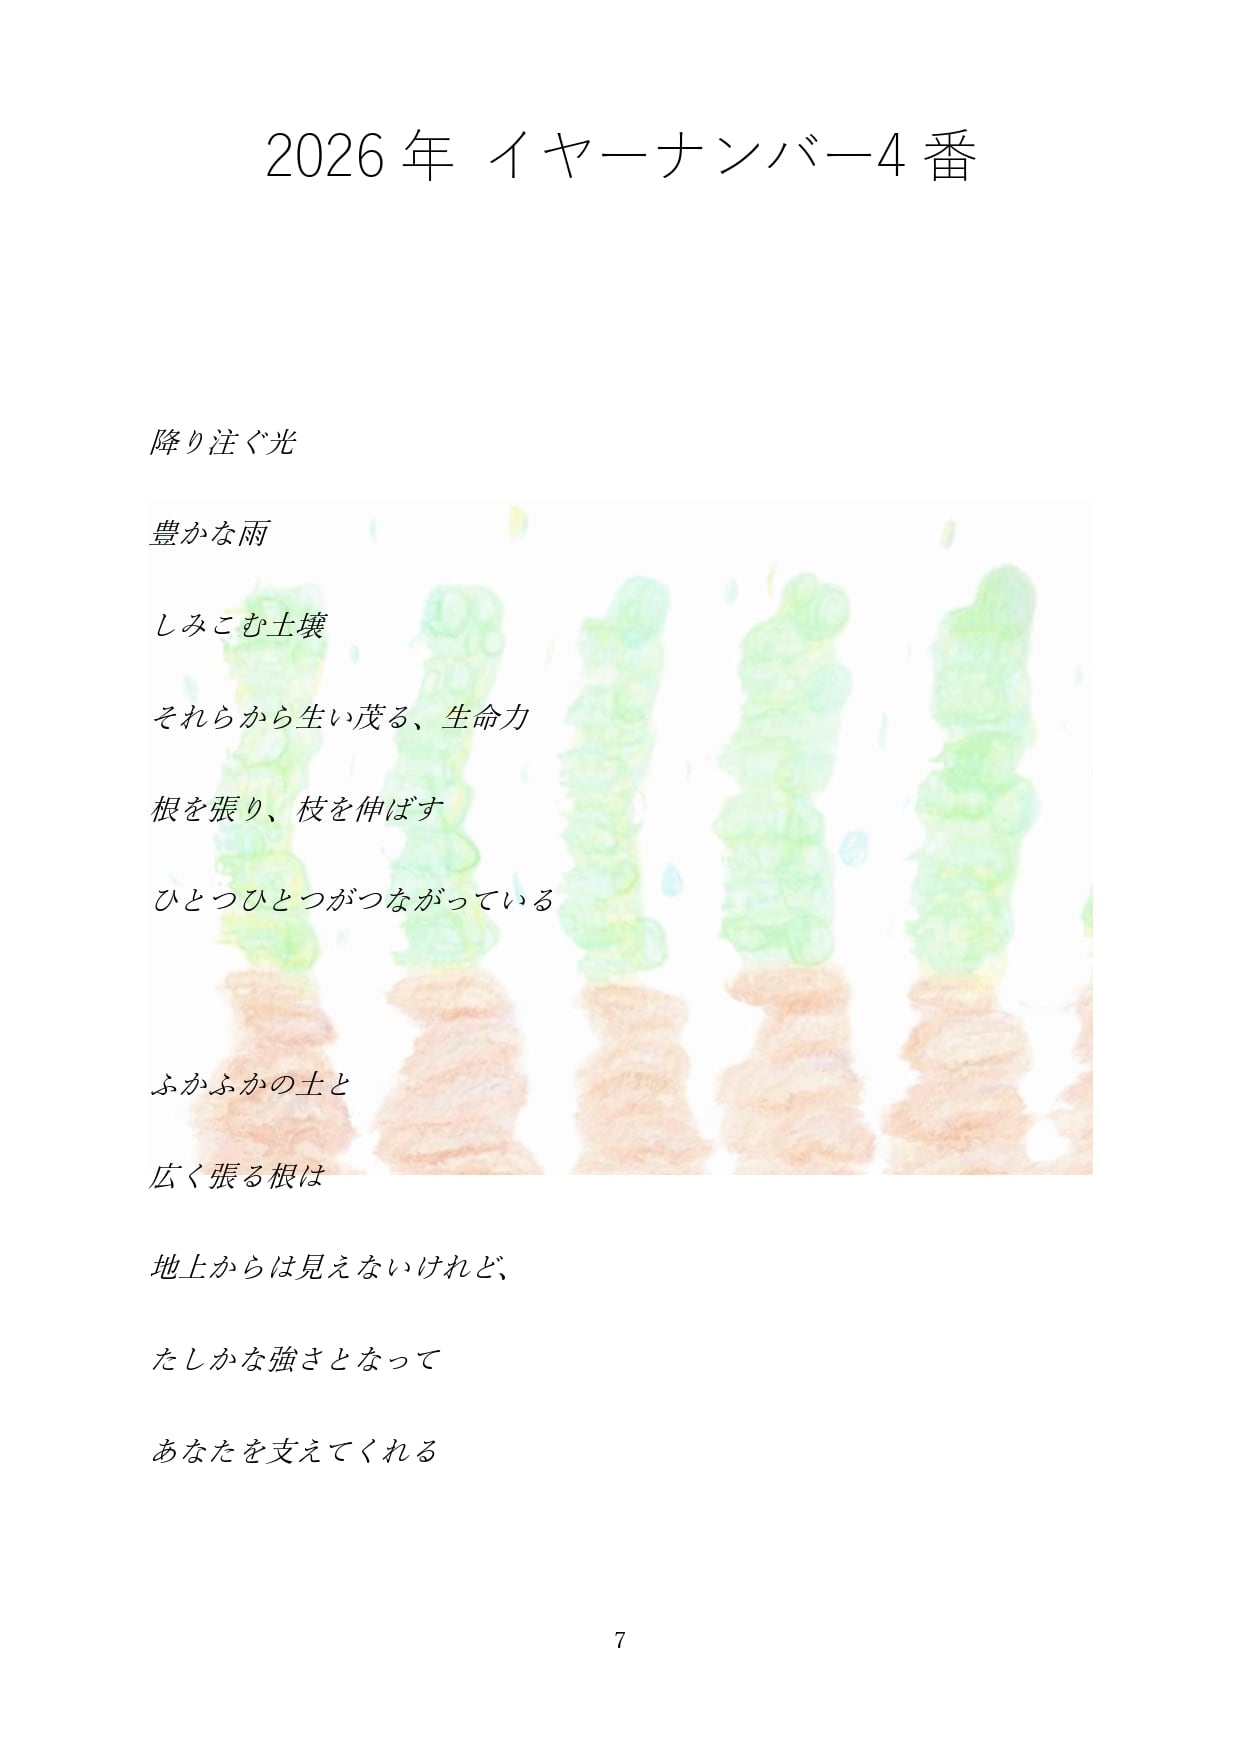 2026年 イヤーナンバー4番
降り注ぐ光
豊かな雨
しみこむ土壌
それらから生い茂る、生命力
根を張り、枝を伸ばす
ひとつひとつがつながっている
ふかふかの土と
広く張る根は
地上からは見えないけれど、
たしかな強さとなって
あなたを支えてくれる
7